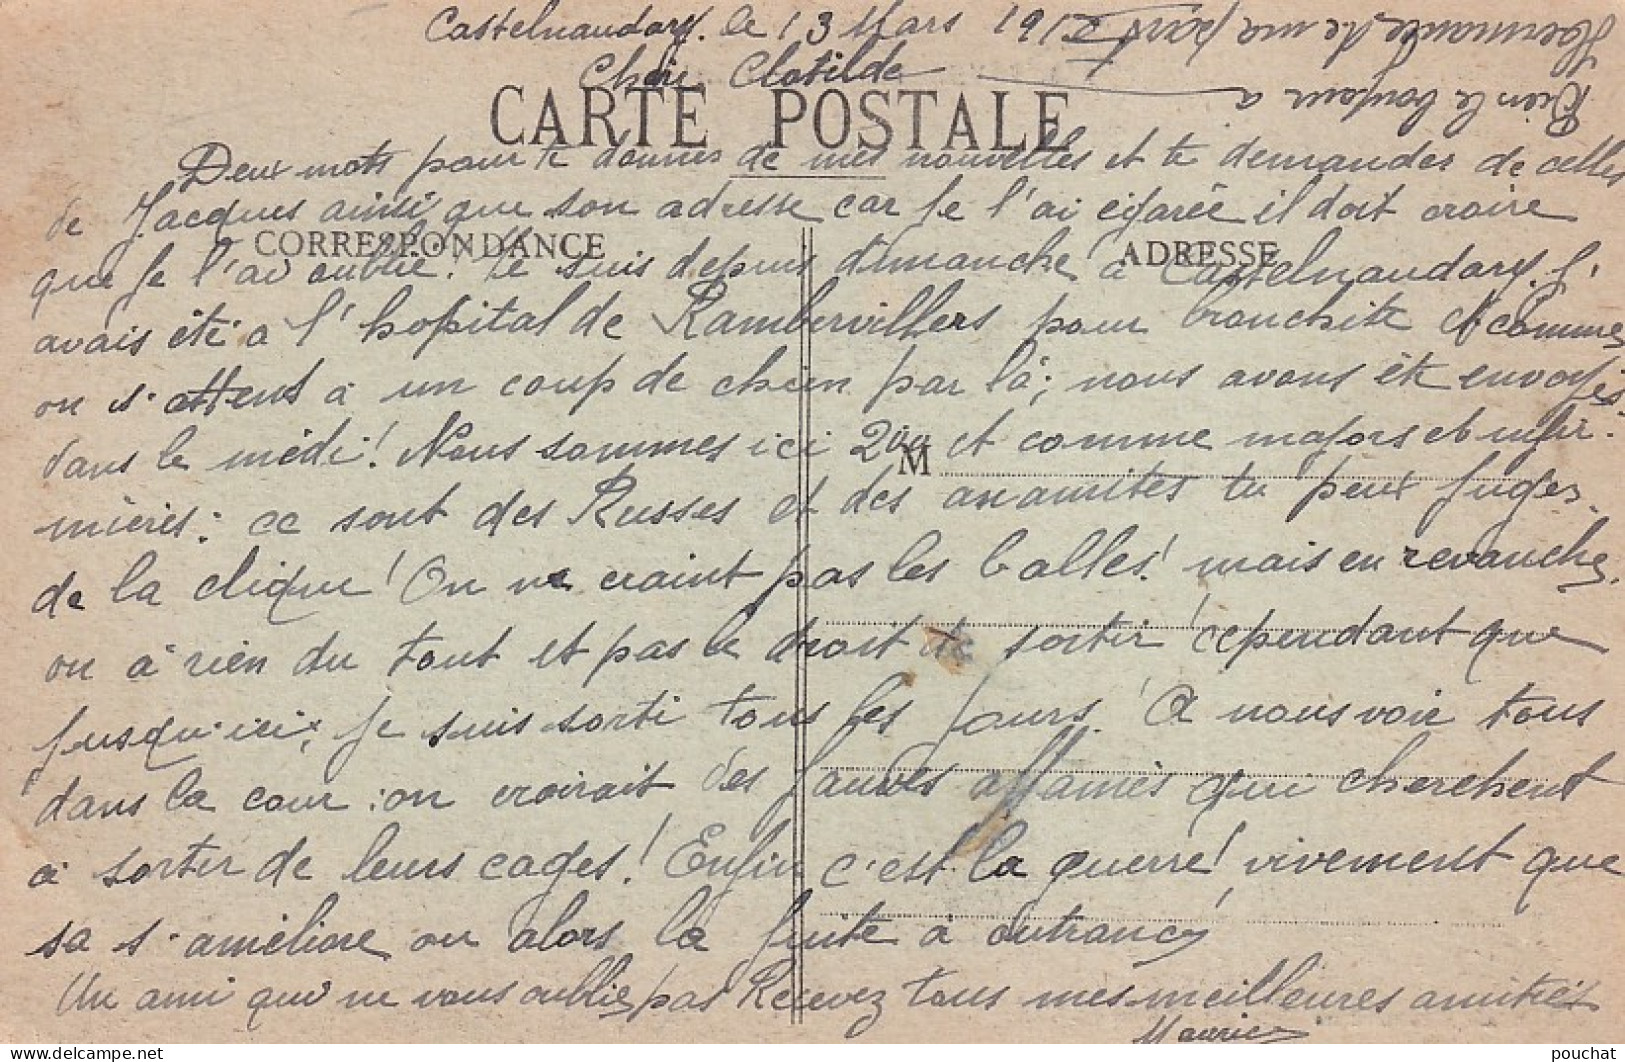 Castelnaudary. le 13 Mars 191
Chère Clotilde
CARTE POSTALE
Bien le bonjour a
Hermance de ma part
Deux mots pour te donner de mes nouvelles et te demander de celles
de Jacques ainsi que son adresse car je l'ai egarée il doit croire
CORRESPONDANCE
ADRESSE
que je l'ai oublié! Je suis depuis dimanche à Castelnaudary. j'
avais été a l'hopital de Rambervillers pour bronchite et comme
on s'attent à un coup de chien par là; nous avons été envoyés
dans le midi! Nous sommes ici 200 et comme majors et infir-
M
mières: ce sont des Russes et des anamites tu peux juger
de la clique! On ne craint pas les balles! mais en revanche
on à rien du tout et pas le droit de sortir! cependant que
jusqu'ici, je suis sorti tous les jours. A nous voir tous
dans la cour: on croirait des fauves affamés qui cherchent
à sortir de leurs cages! Enfin c'est la guerre! vivement que
sa s'améliore ou alors la fuite à outrance
Un ami qui ne vous oublie pas Recevez tous mes meilleures amitiés
Maurice
delcampe.net
pouchat